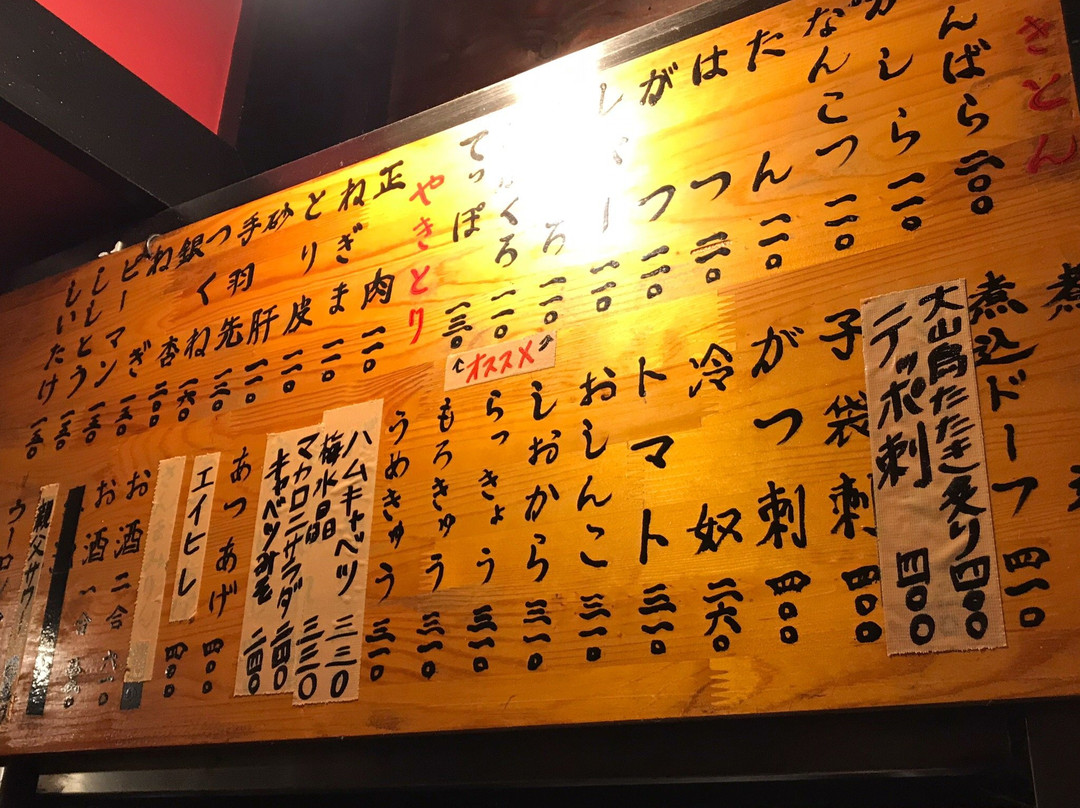 きとん
んばら 一一〇
かしら 一一〇
なんこつ 一一〇
たん 一一〇
はつ 一一〇
がつ 一一〇
しろ 一一〇
てっぽ 一三〇
やきとり
正肉 一一〇
ねぎま 一一〇
とり皮 一一〇
砂肝 一一〇
手羽先
つくね
銀杏
ねぎ
ピーマン 一五〇
ししとう 一五〇
しいたけ 一五〇
煮込ドーフ 四一〇
大山鳥たたき炙り 四〇〇
テッポ刺 四〇〇
子袋刺 四〇〇
がつ刺 四〇〇
冷奴 二六〇
トマト 三一〇
おしんこ 三一〇
しおから 三一〇
オススメ
らっきょう 三一〇
もろきゅう 三一〇
うめきゅう 三一〇
ハムキャベツ 三三〇
梅水晶 三三〇
マカロニサラダ
キャベツみそ 二四〇
あつあげ 四〇〇
エイヒレ 四〇〇
お酒二合
お酒一合
親父サワー